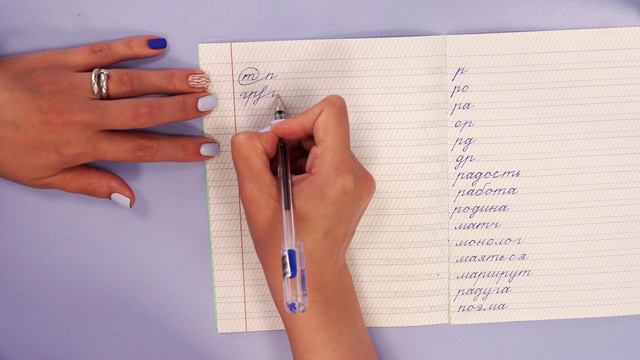 т п
р
ро
ра
ор
рд
др
радость
работа
родина
матч
монолог
маяться
маршрут
радуга
поэма